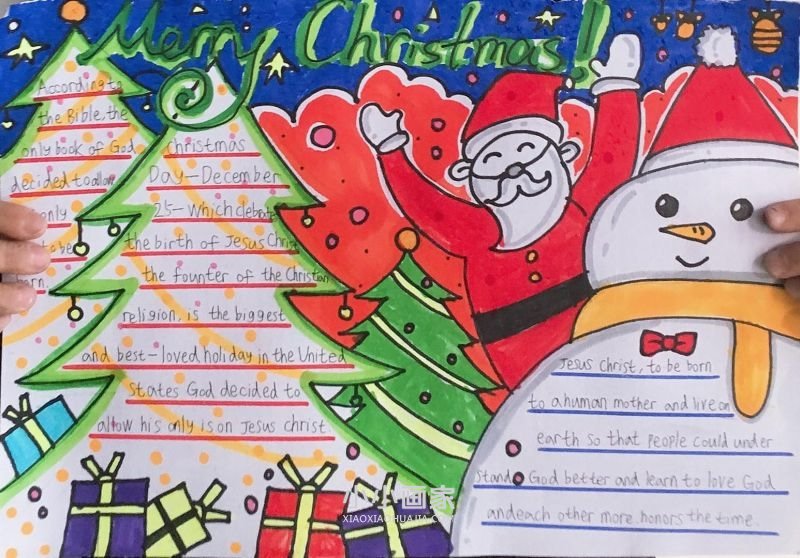 Merry Christmas!
According to
the Bible, the
only book of God
decided to allow
only
to be
orn.
Christmas
Day—December
25—which celebrate
the birth of Jesus Christ
the founter of the Christian
religion, is the biggest
and best-loved holiday in the United
States God decided to
allow his only is on Jesus christ
Jesus Christ, to be born
to a human mother and live on
earth so that people could under
stand God better and learn to love God
and each other more. honors the time.
小小画家
XIAOXIAOHUAJIA.CO